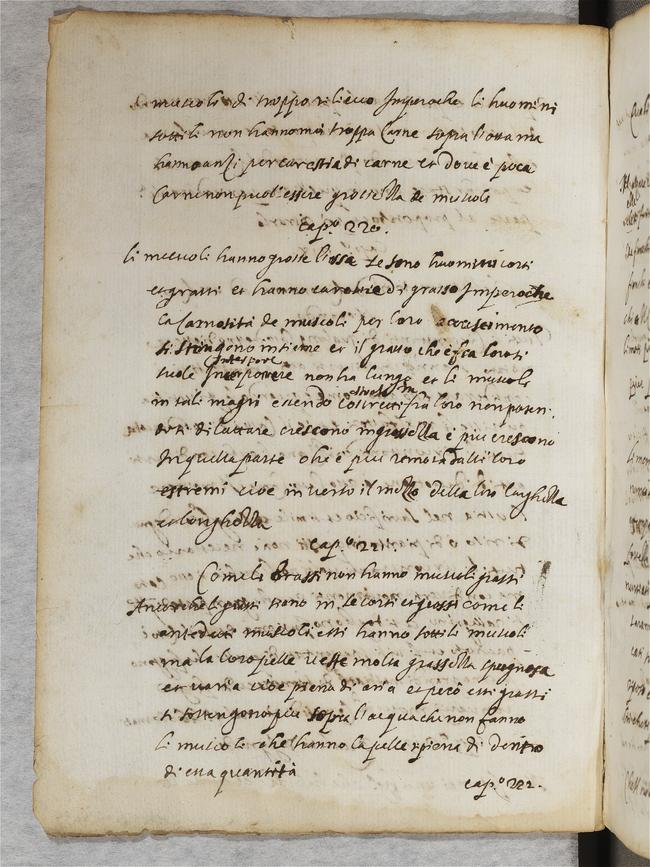 muscoli di troppo rilievo Imperoche li huomini
sottili non hanno mai troppa Carne sopra l'ossa ma
hanno anzi per carestia di carne et dove è poca
Carne non può essere grossezza de muscoli
Cap.º 220.
li muscoli hanno grosse l'ossa se sono huomini corti
et grassi et hanno di grasso Imperoche
la Carnosità de muscoli per loro accrescimento
si stringono insieme et il grasso che fra loro si
interpore
suole Interponere non ha lungo et li muscoli
in tali magri essendo costretti fra loro non poten-
dosi dilattare crescono in grossezza è piu crescono
In quella parte che è piu remota dalli loro
estremi cioe in verso il mezzo della loro larghezza
e longhezza
Cap.º 221.
Come li Grassi non hanno muscoli grossi
Ancorche li grassi sieno in se corti et grossi come li
antedetti muscolosi essi hanno sottili muscoli
ma la loro pelle veste molta grassezza spugnosa
et vana cioe piena di aria et però essi grassi
si sostengono piu sopra l'acqua che non fanno
li muscolosi che hanno la pelle ripiena di dentro
di essa quantità
cap.º 222.